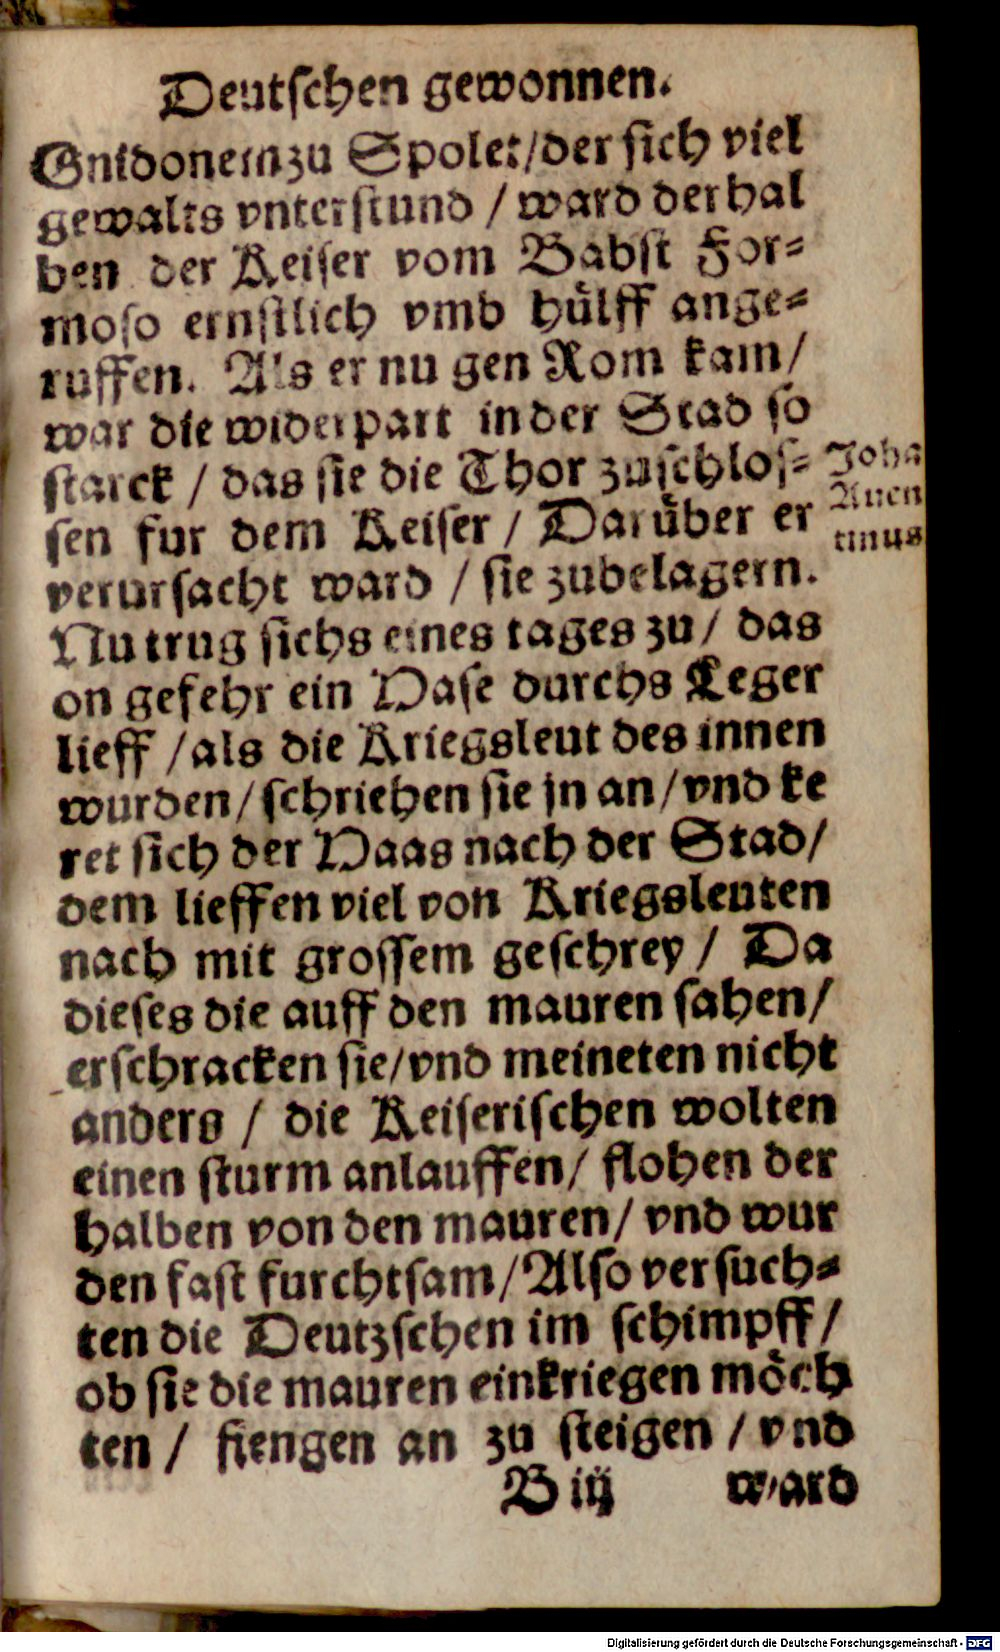 Deutſchen gewonnen.
Gnidonem zu Spolet/der ſich viel
gewalts vnterſtund / ward derhal
ben der Keiſer vom Babſt For⸗
moſo ernſtlich vmb huͤlff ange⸗
ruffen. Als er nu gen Rom kam/
war die widerpart in der Stad ſo
ſtarck / das ſie die Thor zuſchloſ⸗
ſen fur dem Keiſer / Daruͤber er
verurſacht ward / ſie zubelagern.
Nu trug ſichs eines tages zu / das
on gefehr ein Haſe durchs Leger
lieff /als die Kriegsleut des innen
wurden/ ſchriehen ſie jn an/vnd ke
ret ſich der Haas nach der Stad/
dem lieffen viel von Kriegsleuten
nach mit groſſem geſchrey / Da
dieſes die auff den mauren ſahen/
erſchracken ſie/vnd meineten nicht
anders / die Keiſeriſchen wolten
einen ſturm anlauffen/ flohen der
halben von den mauren/ vnd wur
den faſt furchtſam/Alſo verſuch⸗
ten die Deutzſchen im ſchimpff /
ob ſie die mauren einkriegen moͤch
ten / fiengen an zu ſteigen / vnd
B iij ward
Joha
Auen
tinus
Digitalisierung gefördert durch die Deutsche Forschungsgemeinschaft - DFG